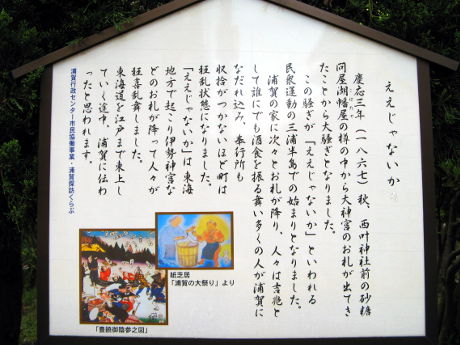 ええじゃないか
慶応三年(一八六七)秋、西叶神社前の砂糖
問屋湖幡屋の樽の中から大神宮のお札が出てき
たことから大騒ぎとなりました。
この騒ぎが「ええじゃないか」といわれる
民衆運動の三浦半島での始まりとなりました。
浦賀の家に次々とお札が降り、人々は吉兆と
して誰にでも酒食を振る舞い多くの人が浦賀に
なだれ込み、奉行所も
収拾がつかないほど町は
狂乱状態になりました。
「ええじゃないか」は東海
地方で起こり伊勢神宮な
どのお札が降って人々が
狂喜乱舞しました。
東海道を江戸まで東上し
ていく途中、浦賀に伝わ
ったと思われます。
浦賀行政センター市民協働事業・浦賀探訪くらぶ
紙芝居
「浦賀の大祭り」より
「豊饒御蔭参之図」